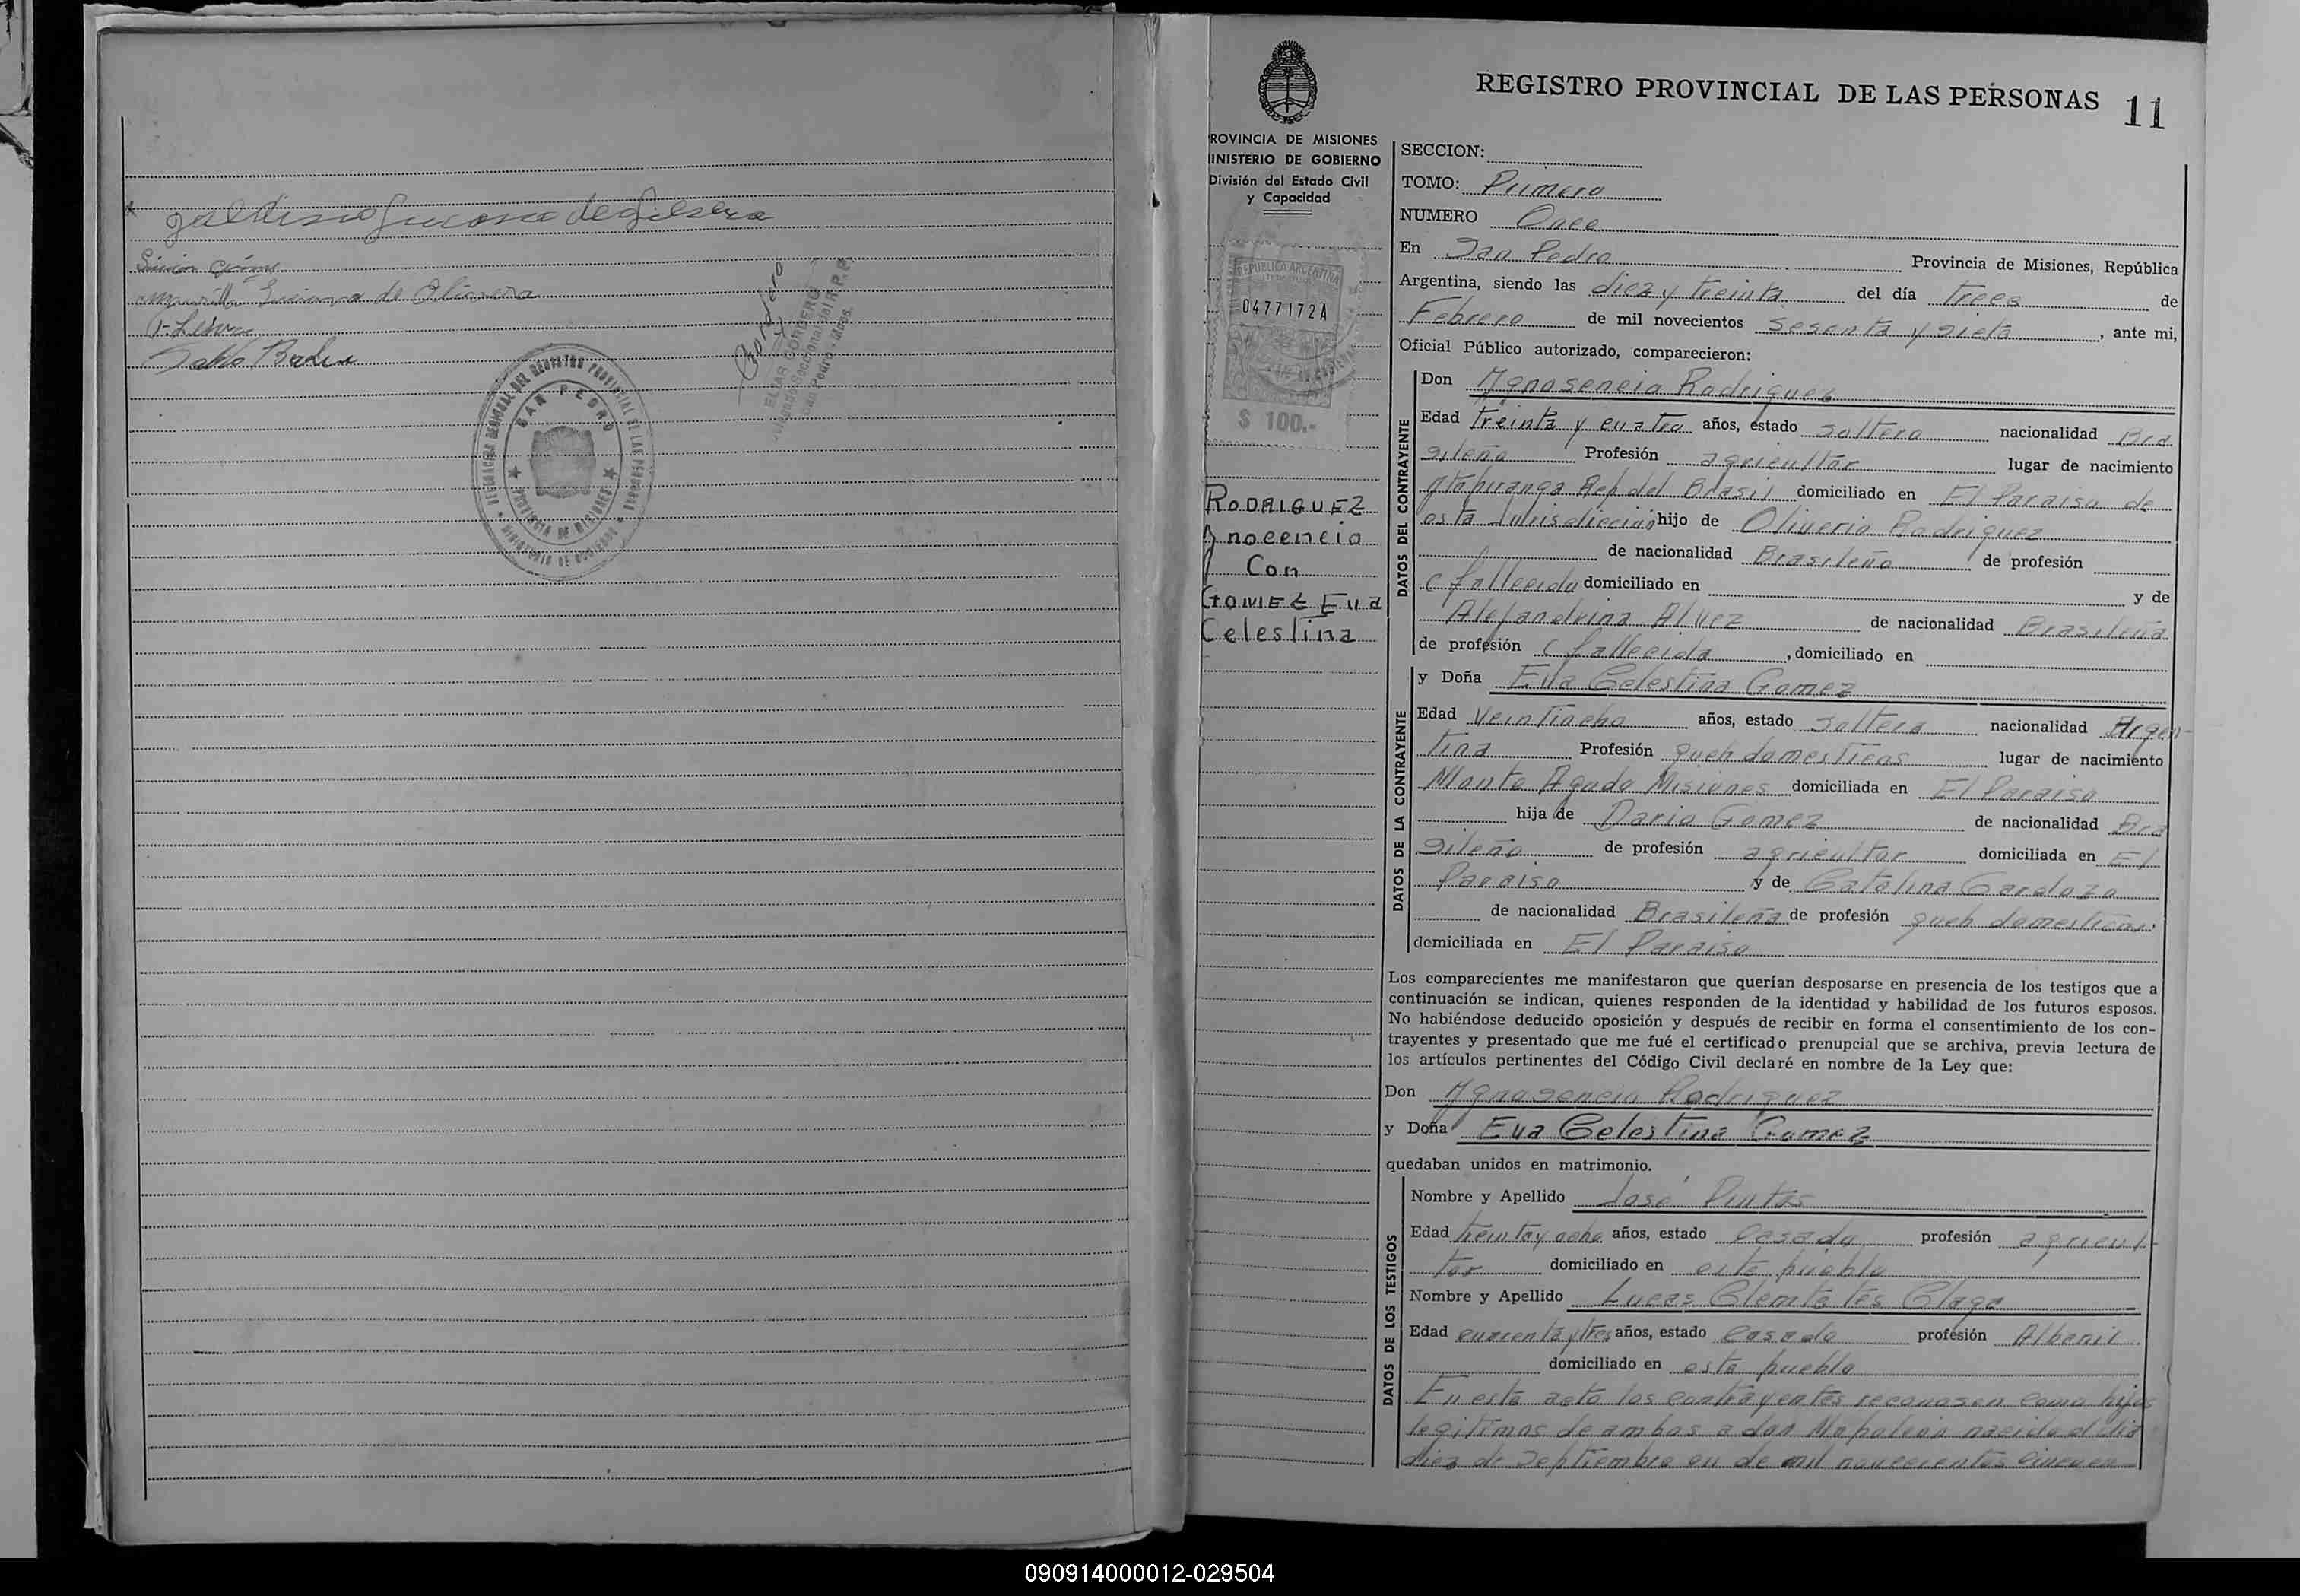 Simon Gómez
de Olivera
Pablo
Cordero
ELAR CORDERO
SAN PEDRO
PROVINCIA DE MISIONES
REGISTRO PROVINCIAL DE LAS PERSONAS
11
ROVINCIA DE MISIONES
INISTERIO DE GOBIERNO
División del Estado Civil
y Capacidad
REPUBLICA ARGENTINA
0477172A
$ 100.-
RODRIGUEZ
Ynocencio
Con
GOMEZ Eva
Celestina
SECCION:
TOMO: Primero
NUMERO Once
En San Pedro Provincia de Misiones, República
Argentina, siendo las diez y treinta del día trece de
Febrero de mil novecientos sesenta y siete, ante mi,
Oficial Público autorizado, comparecieron:
DATOS DEL CONTRAYENTE
Don Ygnosencio Rodriguez
Edad treinta y cuatro años, estado soltero nacionalidad Bra
sileño Profesión agricultor lugar de nacimiento
Ytapiranga Rep del Brasil domiciliado en El Paraiso de
esta Jurisdiccion hijo de Oliverio Rodriguez
de nacionalidad Brasileño de profesión
( fallecido domiciliado en y de
Alejandrina Alvez de nacionalidad Brasileña
de profesión ( fallecida, domiciliado en
DATOS DE LA CONTRAYENTE
y Doña Eva Celestina Gomez
Edad Veintiocho años, estado soltera nacionalidad Argen-
tina Profesión queh domesticos lugar de nacimiento
Monte Agudo Misiones domiciliada en El Paraiso
hija de Dario Gomez de nacionalidad Bra
sileño de profesión agricultor domiciliada en El
Paraiso y de Catalina Cardozo
de nacionalidad Brasileña de profesión queh domesticos
domiciliada en El Paraiso
Los comparecientes me manifestaron que querían desposarse en presencia de los testigos que a
continuación se indican, quienes responden de la identidad y habilidad de los futuros esposos.
No habiéndose deducido oposición y después de recibir en forma el consentimiento de los con-
trayentes y presentado que me fué el certificado prenupcial que se archiva, previa lectura de
los artículos pertinentes del Código Civil declaré en nombre de la Ley que:
Don Ygnosencio Rodriguez
y Doña Eva Celestina Gomez
quedaban unidos en matrimonio.
DATOS DE LOS TESTIGOS
Nombre y Apellido José Pintos
Edad treinta y ocho años, estado casado profesión agricul-
tor domiciliado en este pueblo
Nombre y Apellido Lucas
Edad cuarenta y tres años, estado casado profesión Albanil
domiciliado en este pueblo
En este acto los contrayentes reconosen como hijos
legitimos de ambos a don Napoleon nacido el dia
diez de Septiembre en de mil novecientos cincuen
090914000012-029504